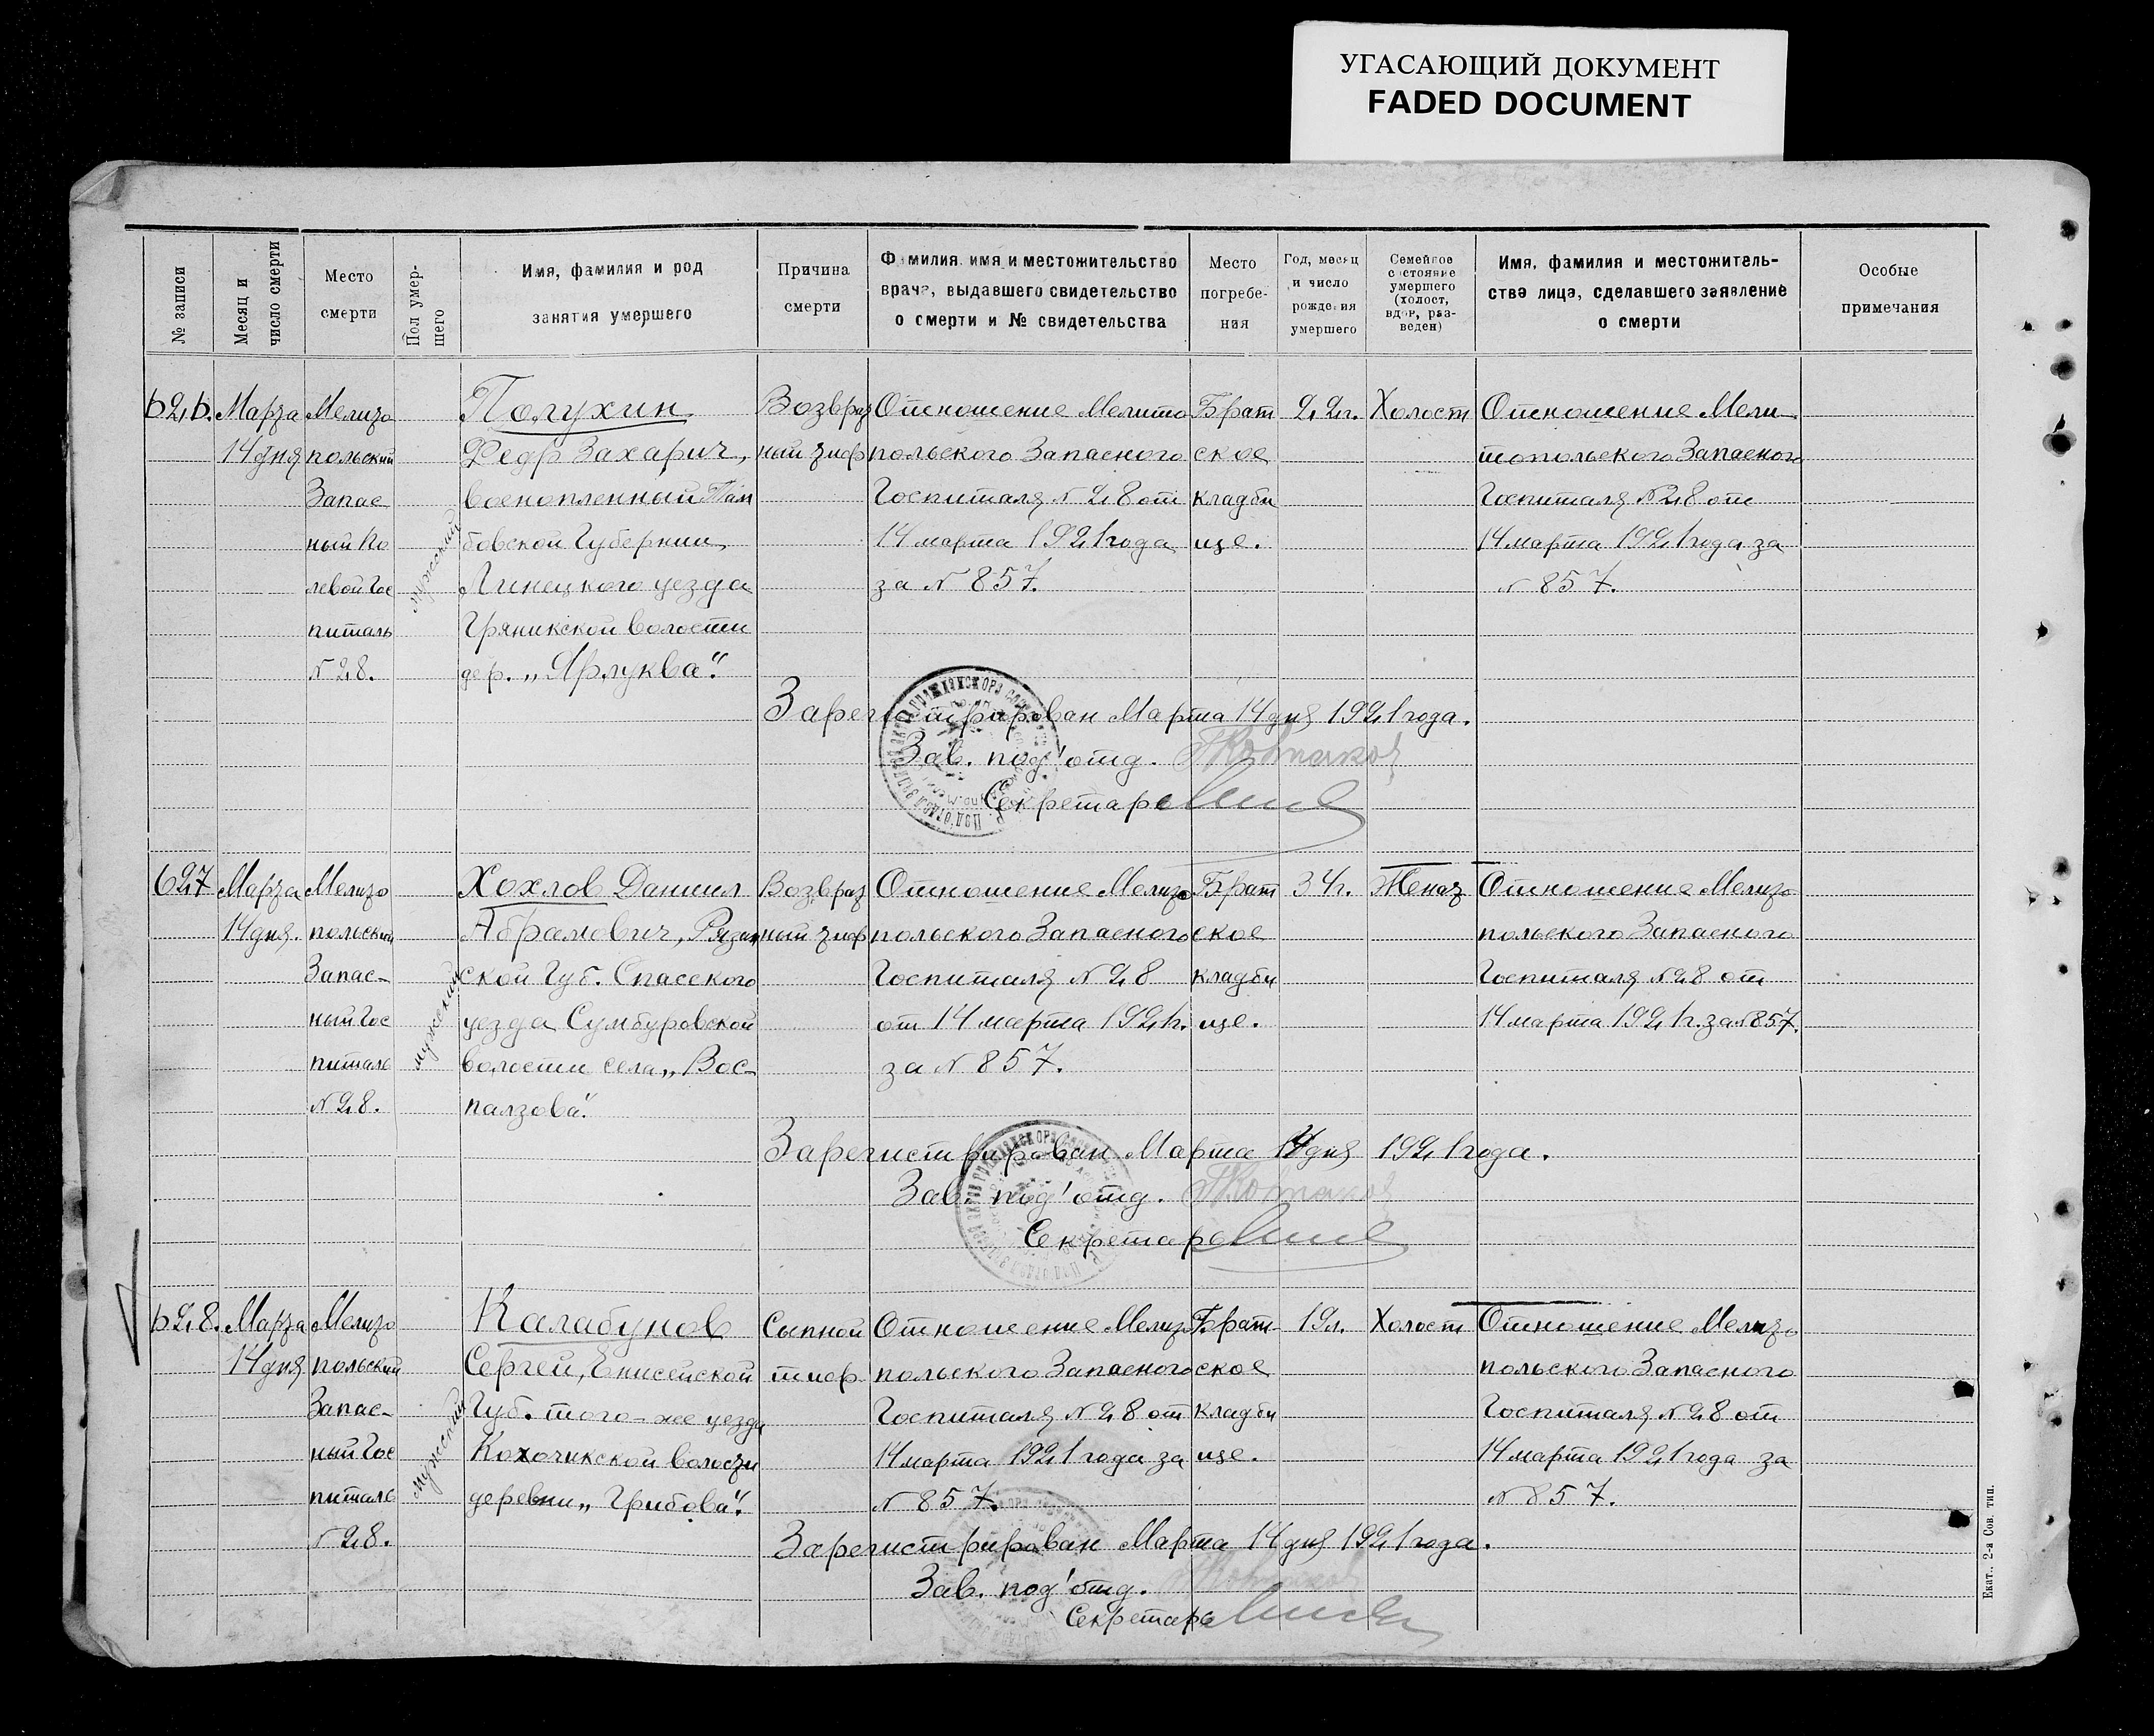 УГАСАЮЩИЙ ДОКУМЕНТ
FADED DOCUMENT
№ записи
Месяц и
число смерти
Место
смерти
Пол умер-
шего
Имя, фамилия и род
занятия умершего
Причина
смерти
Фамилия, имя и местожительство
врача, выдавшего свидетельство
о смерти и № свидетельства
Место
погребе-
ния
Год, месяц
и число
рождения
умершего
Семейное
состояние
умершего
(холост,
вдов, раз-
веден)
Имя, фамилия и местожитель-
ства лица, сделавшего заявление
о смерти
Особые
примечания
626.
Марта
14 дня
Мелито
польский
Запас
ный По
левой Гос
питаль
№ 28.
мужской
Полухин
Федр Захарич,
военопленный Там
бовской Губернии
Липецкого уезда
Грязикской волости
дер. „Ярлуква".
Возврат
ный тиф
Отношение Мелито
польского Запасного
Госпиталя № 28 от
14 марта 1921 года
за № 857.
Брат
ское
кладби
ще.
22 г.
Холост
Отношение Мели-
топольского Запасного
Госпиталя № 28 от
14 марта 1921 года за
№ 857.
Зарегистрирован Марта 14 дня 1921 года.
Зав. под'отд.
Секретарь
627
Марта
14 дня.
Мелито
польский
Запас-
ный Гос
питаль
№ 28.
мужский
Хохлов Даниил
Абрамович, Рязан
ской Губ. Спасского
уезда Сумбуровской
волости села „Вос-
палзова".
Возврат
ный тиф
Отношение Мелито
польского Запасного
Госпиталя № 28
от 14 марта 1921 г.
за № 857.
Брат
ское
кладби
ще.
34 г.
Женат
Отношение Мелито
польского Запасного
Госпиталя № 28 от
14 марта 1921 г. за № 857.
Зарегистрирован Марта 14 дня 1921 года.
Зав. под'отд.
Секретарь
628.
Марта
14 дня
Мелито
польский
Запас-
ный Гос
питаль
№ 28.
мужской
Калабунов
Сергей, Енисейской
Губ. того-же уезда
Кохочикской волости
деревни „Грибова".
Сыпной
тиф
Отношение Мелито
польского Запасного
Госпиталя № 28 от
14 марта 1921 года за
№ 857.
Брат-
ское
кладби
ще.
19 л.
Холост
Отношение Мелито
польского Запасного
Госпиталя № 28 от
14 марта 1921 года за
№ 857.
Зарегистрирован Марта 14 дня 1921 года.
Зав. под'отд.
Секретарь
Екат., 2-я Сов. тип.